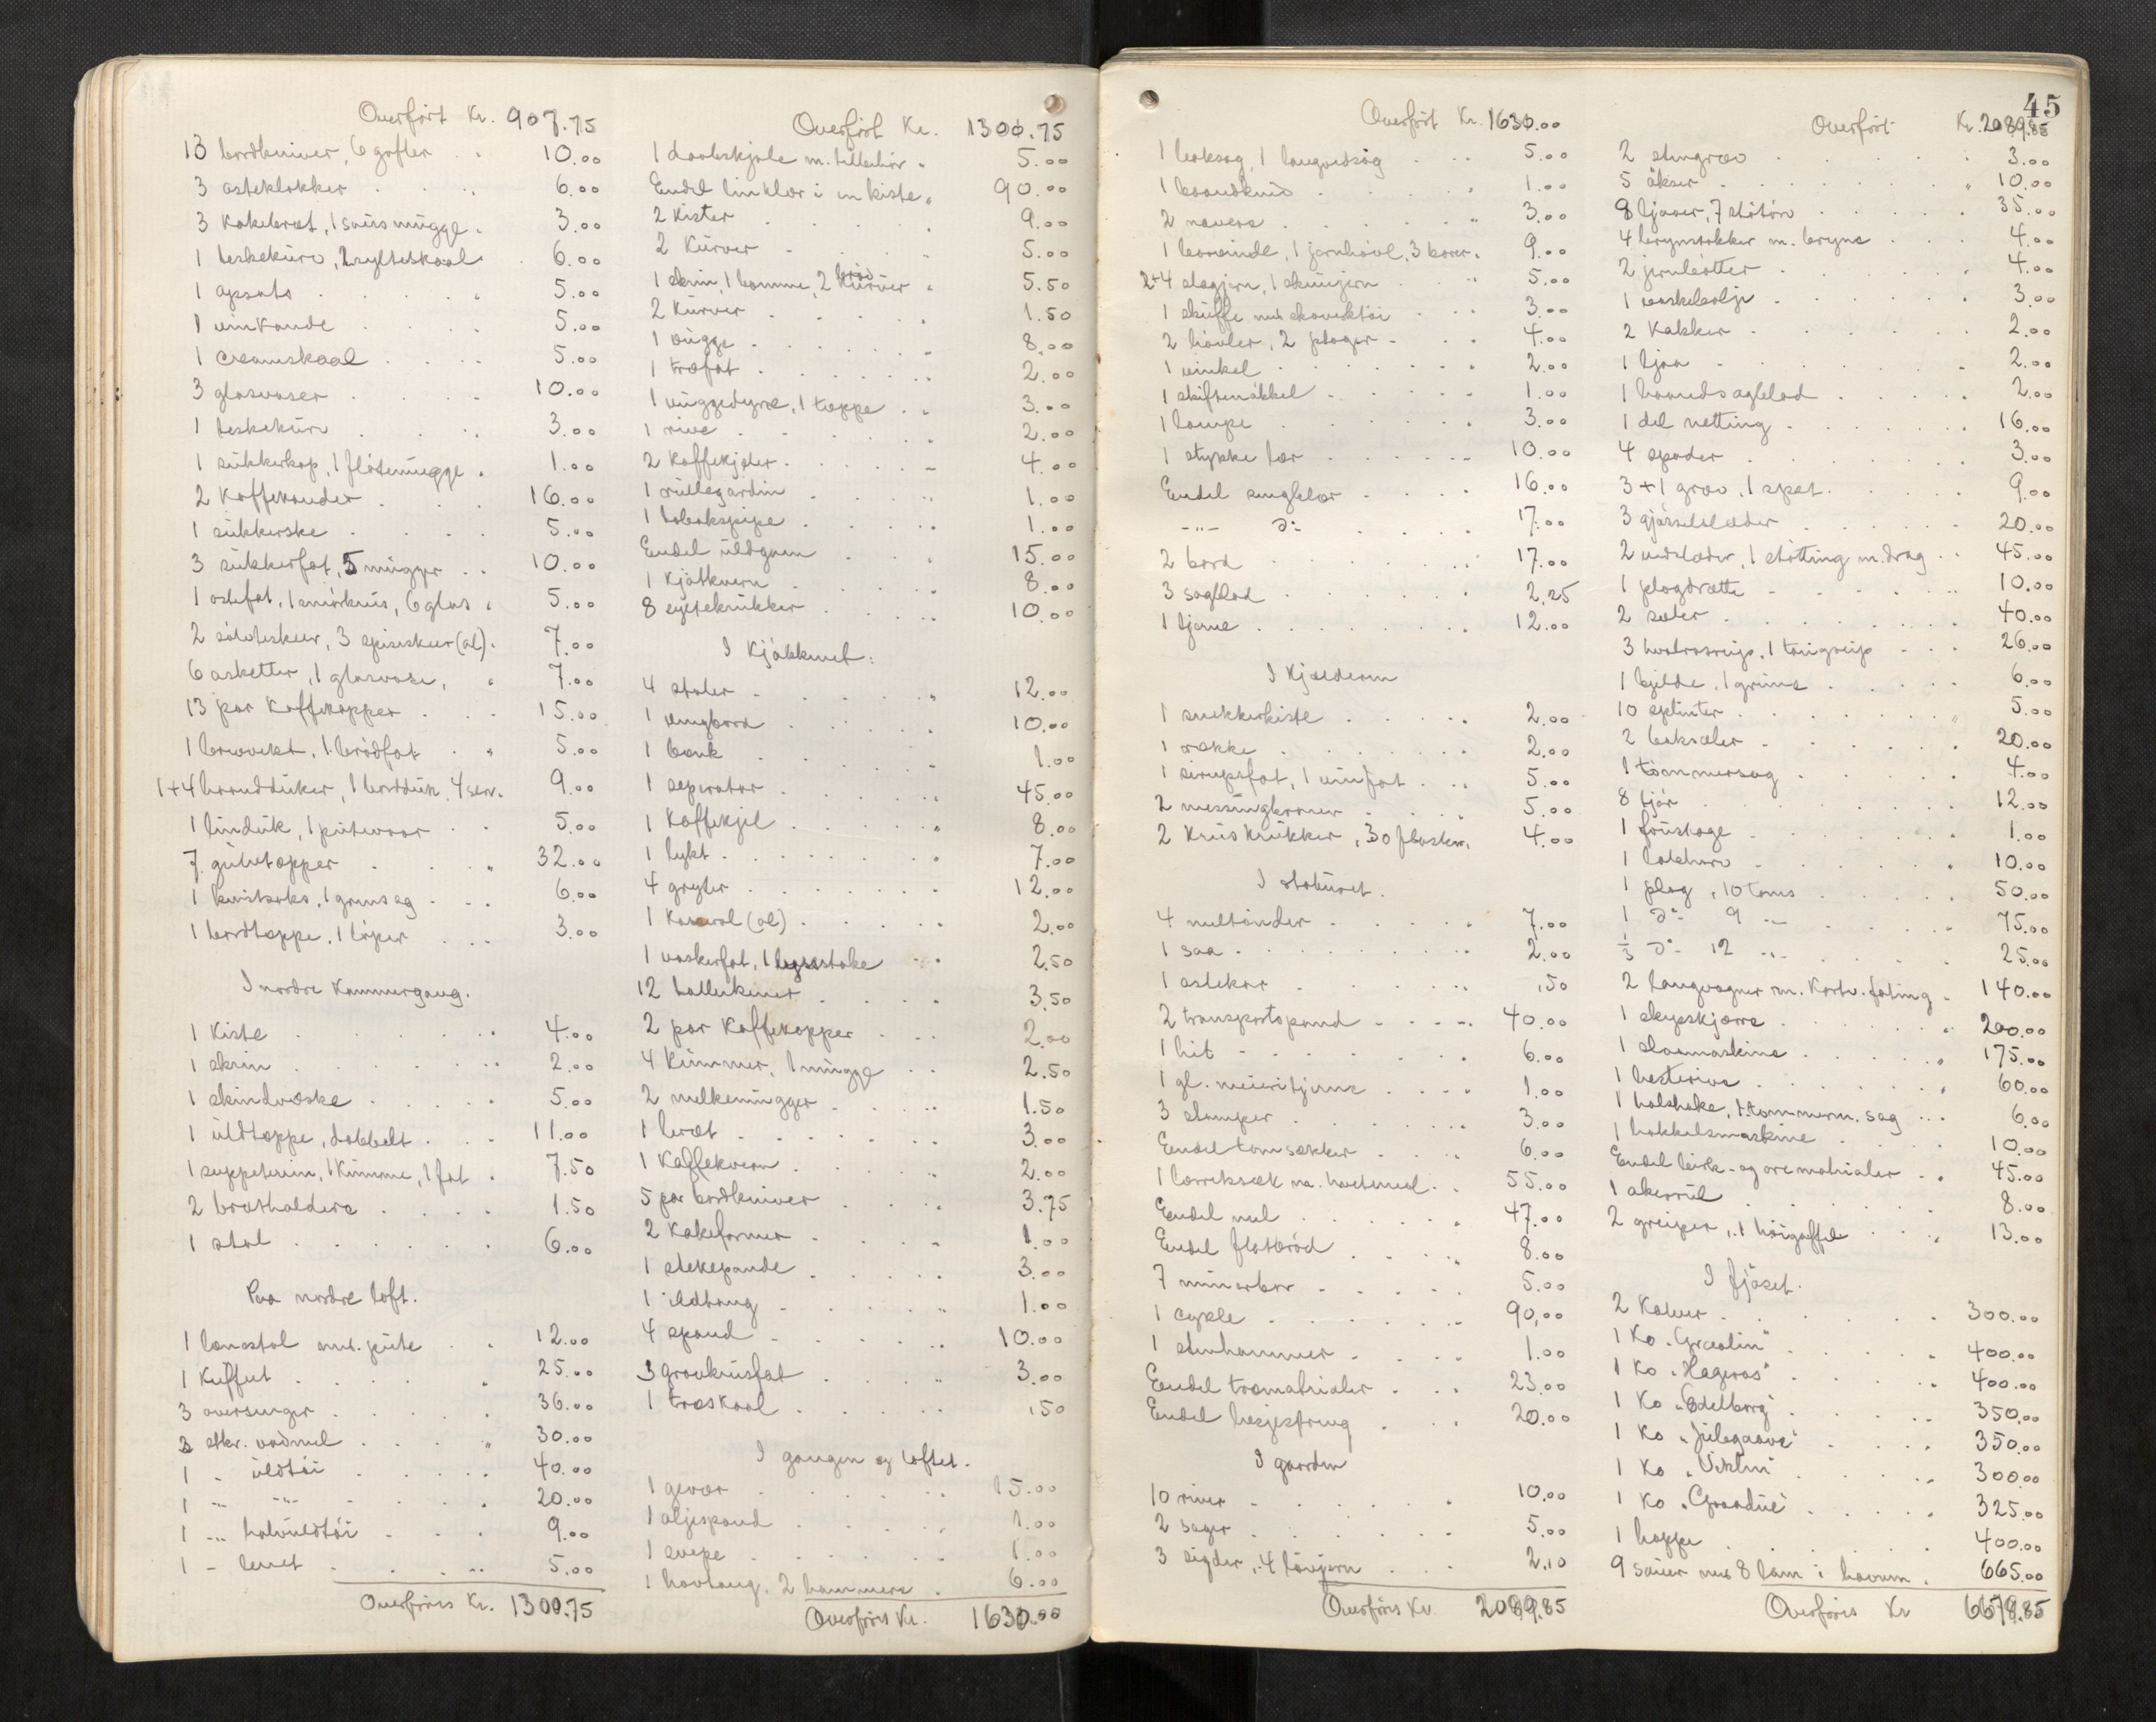 Overført Kr. 907.75
13 bordkniver, 6 gafler 10.00
3 osteklokker 6.00
3 kakebret, 1 sausmugge 3.00
1 brødkurv, 2 sylteskaal 6.00
1 opsats 5.00
1 vinkande 5.00
1 cremeskaal 5.00
3 glasvaser 10.00
1 brødkurv 3.00
1 sukkerkop, 1 fløtemugge 1.00
2 Kaffekander 16.00
1 sukkerske 5.00
3 sukkerfat, 5 mugger 10.00
1 ostefat, 1 smørkrus, 6 glas 5.00
2 sølvteskeer, 3 spiseskeer (al). 7.00
6 asketter, 1 glasvase, 7.00
13 par Kaffekopper 15.00
1 brevvekt, 1 brødfat 5.00
1+4 haandduker, 1 bordduk, 4 serv. 9.00
1 linduk, 1 putevaar 5.00
7 gulvtepper 32.00
1 kvistsaks, 1 grensag 6.00
1 bordteppe, 1 løper 3.00
I nordre Kammergang.
1 Kiste 4.00
1 skrin 2.00
1 skindvæske 5.00
1 uldteppe, dobbelt 11.00
1 suppeterrin, 1 Kumme, 1 fat 7.50
2 brætholdere 1.50
1 stol 6.00
Paa nordre loft.
1 lænestol med pute 12.00
1 Kuffert 25.00
3 oversenger 36.00
3 stkr. vadmel 30.00
1 - uldtøi 40.00
1 -"- -"- 20.00
1 -"- halvuldtøi 9.00
1 - lerret 5.00
Overføres Kr. 1300.75
Overført Kr. 1300.75
1 daabskjole m. tilbehør 5.00
Endel linklær i en kiste 90.00
2 Kister 9.00
2 Kurver 5.00
1 skrin, 1 tromme, 2 brød Kurver 5.50
2 Kurver 1.50
1 vugge 8.00
1 træfat 2.00
1 vuggedyne, 1 teppe 3.00
1 rive 2.00
2 Kaffekjeler 4.00
1 rullegardin 1.00
1 tobakspipe 1.00
Endel uldgarn 15.00
1 Kjøtkvern 8.00
8 syltekrukker 10.00
I Kjøkkenet:
4 stoler 12.00
1 slengbord 10.00
1 benk 1.00
1 separator 45.00
1 Kaffekjel 8.00
1 lykt 7.00
4 gryter 12.00
1 Kaserol (al) 2.00
1 vaskerfat, 1 lysestake 2.50
12 tallerkener 3.50
2 par Kaffekopper 2.00
4 Kummer, 1 mugge 2.50
2 melkemugger 1.50
1 bret 3.00
1 Kaffekvern 2.00
5 par bordkniver 3.75
2 Kakeformer 1.00
1 stekepande 3.00
1 ildtang 1.00
4 spand 10.00
3 graukrusfat 3.00
1 træskaal .50
I gangen og loftet.
1 gevær 15.00
1 oljespand 1.00
1 svepe 1.00
1 hovtang, 2 hammere 6.00
Overføres Kr. 1630.00
45
Overført Kr. 1630.00
1 baksag, 1 langvedsag 5.00
1 baandkniv 1.00
2 navere 3.00
1 borvinde, 1 jernhøvl, 3 borer 9.00
2+4 slagjern, 1 skrujern 5.00
1 skuffe med skoverktøi 3.00
2 høvler, 2 ploger 4.00
1 vinkel 2.00
1 skiftenøkkel 1.00
1 lampe 3.00
1 stykke lær 10.00
Endel sengklær 16.00
-"- do 17.00
2 bord 17.00
3 sagblad 2.25
1 kjerne 12.00
I Kjælderen
1 snekkerkiste 2.00
1 rokke 2.00
1 sirupsfat, 1 vinfat 5.00
2 messingkraner 5.00
2 Kruskrukker, 30 flasker 4.00
I stabburet.
4 meltønder 7.00
1 saa 2.00
1 ostekar .50
2 transportspand 40.00
1 hit 6.00
1 gl. meieritjerne 1.00
3 stamper 3.00
Endel tomsækker 6.00
1 lærretssæk m. hvetemel 55.00
Endel mel 47.00
Endel flatbrød 8.00
7 minerbor 5.00
1 cykle 90.00
1 stenhammer 1.00
Endel træmaterialer 23.00
Endel hesjestreng 20.00
I gaarden
10 river 10.00
2 sager 5.00
3 sigder, 4 løvjern 2.10
Overføres Kr 2089.85
Overført Kr. 2089.85
2 stengrev 3.00
5 økser 10.00
8 ljaaer, 7 stutorv 35.00
4 brynstokker m. bryne 4.00
2 jernbøtter 4.00
1 vaskebalje 3.00
2 Kakker 2.00
1 ljaa 2.00
1 haandsagblad 2.00
1 del netting 16.00
4 spader 3.00
3+1 grev, 1 spet 9.00
3 gjødselslæder 20.00
2 vedslæder, 1 støtting m. drag 45.00
1 plogdrætte 10.00
2 seler 40.00
3 hvalrosreip, 1 taugreip 26.00
1 bjelde, 1 grime 6.00
10 splinter 5.00
2 bakseler 20.00
1 tømmersag 4.00
8 tjor 12.00
1 frustage 1.00
1 labbharv 10.00
1 plog, 10 toms 50.00
1 do 9 -"- 75.00
1/3 do 12 -"- 25.00
2 langvogner m. Karv. foting 140.00
1 skyskjærre 200.00
1 slaamaskine 175.00
1 hesterive 60.00
1 halshake, 1 tømmerm. sag 6.00
1 hakkelsmaskine 10.00
Endel birk- og orematrialer 45.00
1 akerrul 8.00
2 greiper, 1 høigaffel 13.00
I fjøset.
2 Kalver 300.00
1 Ko "Graalin" 400.00
1 Ko "Hageros" 400.00
1 Ko "Edelborg" 350.00
1 Ko "Julegaave" 350.00
1 Ko "Viktin" 300.00
1 Ko "Graadue" 325.00
1 hoppe 400.00
9 sauer med 8 lam i havnen 665.00
Overføres Kr 6679.85